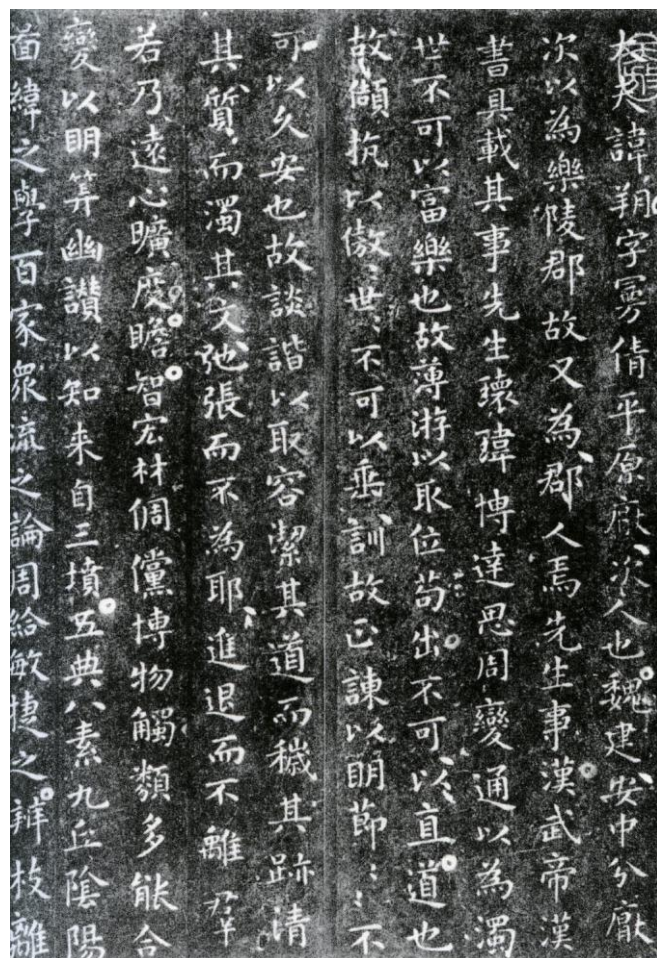 大夫諱朔字曼倩平原厭次人也魏建安中分厭
次以為樂陵郡故又為郡人焉先生事漢武帝漢
書具載其事先生瓌瑋博達思周變通以為濁
世不可以富樂也故薄游以取位苟出不可以直道也
故頡抗以傲〻世〻不可以垂訓故正諫以明節〻〻不
可以久安也故談諧以取容潔其道而穢其跡清
其質而濁其文弛張而不為耶進退而不離群
若乃遠心曠度瞻智宏材倜儻博物觸類多能合
變以明筭幽讃以知来自三墳五典八素九丘陰陽
啚緯之學百家衆流之論周給敏捷之辨枝離